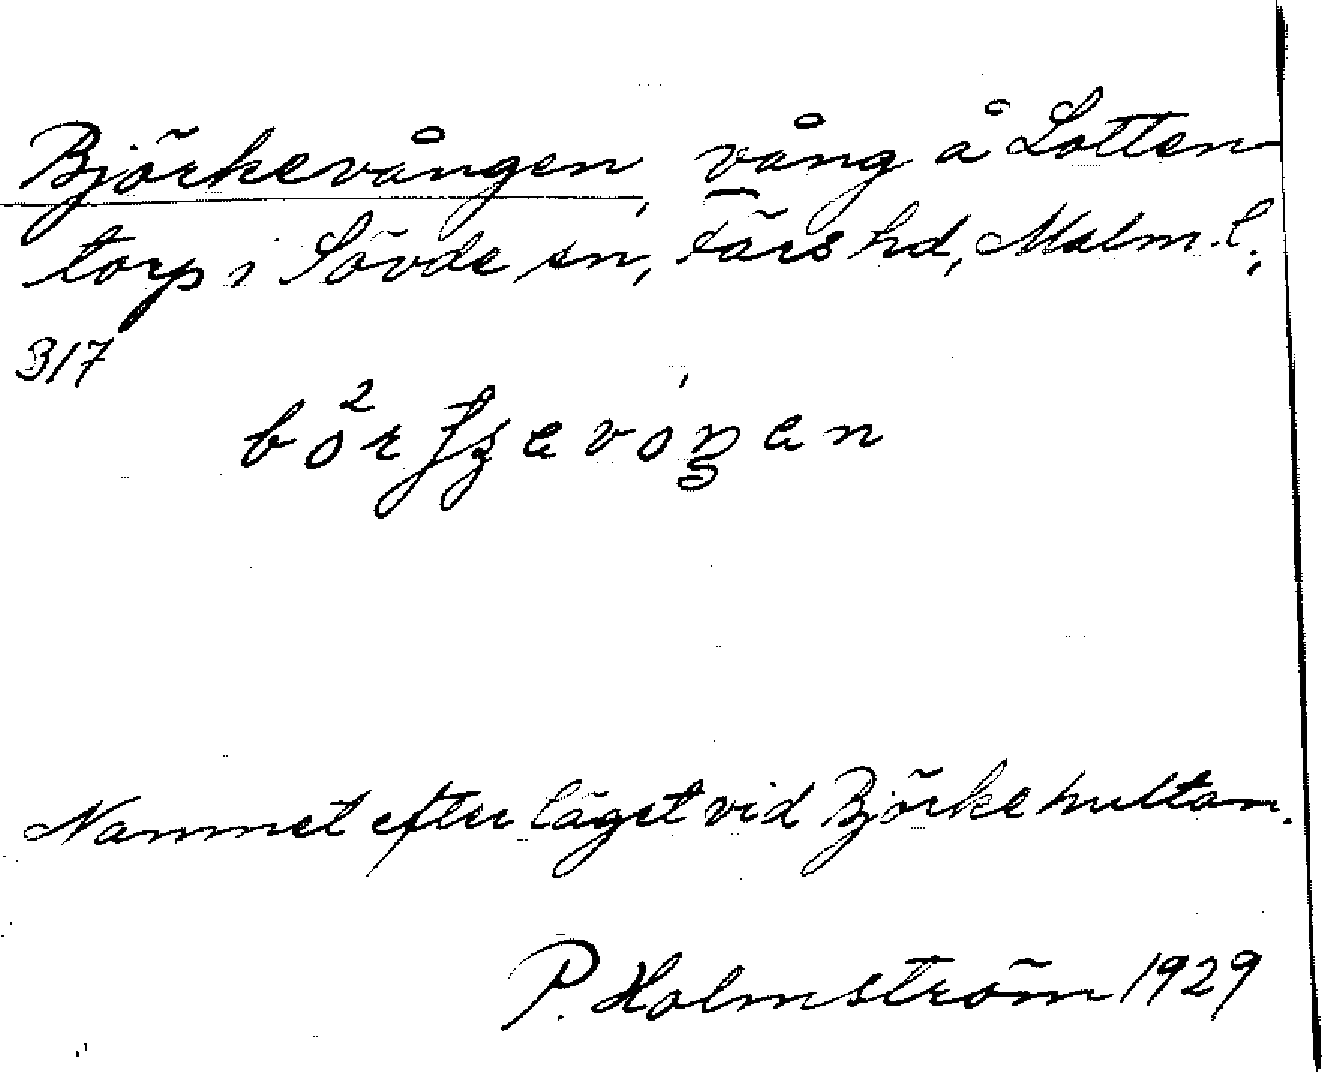 Björkevången, vång å Lotten-
torp i Sövde sn, Färs hd, Malm. l.;
317
Namnet efter läget vid Björkehultan.
P. Holmström 1929